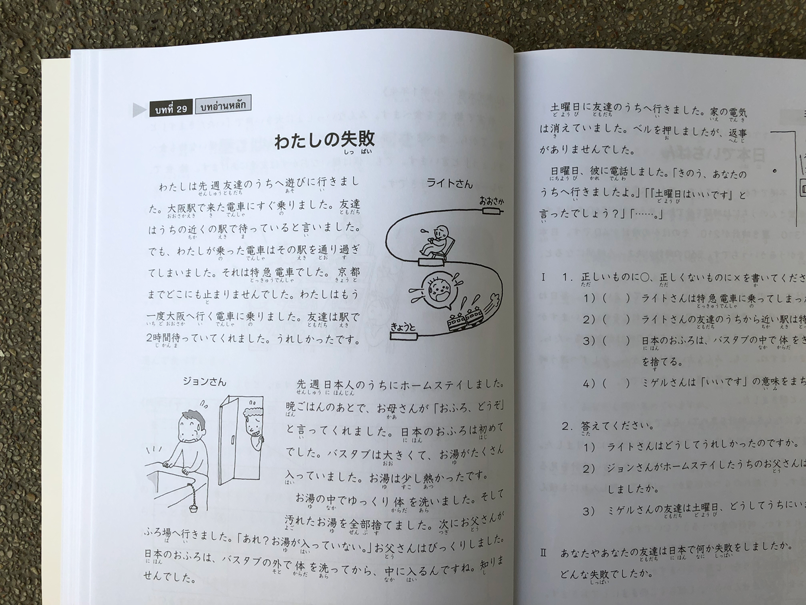 บทที่ 29 บทอ่านหลัก
わたしの失敗
しっ ぱい
ライトさん
わたしは先週友達のうちへ遊びに行きまし
た。大阪駅で来た電車にすぐ乗りました。友達
はうちの近くの駅で待っていると言いました。
でも、わたしが乗った電車はその駅を通り過ぎ
てしまいました。それは特急電車でした。京都
までどこにも止まりませんでした。わたしはもう
一度大阪へ行く電車に乗りました。友達は駅で
2時間待っていてくれました。うれしかったです。
おおさか
きょうと
ジョンさん
先週日本人のうちにホームステイしました。
晩ごはんのあとで、お母さんが「おふろ、どうぞ」
と言ってくれました。日本のおふろは初めて
でした。バスタブは大きくて、お湯がたくさん
入っていました。お湯は少し熱かったです。
お湯の中でゆっくり体を洗いました。そして
汚れたお湯を全部捨てました。次にお父さんが
ふろ場へ行きました。「あれ？お湯が入っていない。」お父さんはびっくりしました。
日本のおふろは、バスタブの外で体を洗ってから、中に入るんですね。知りま
せんでした。
土曜日に友達のうちへ行きました。家の電気
は消えていました。ベルを押しましたが、返事
がありませんでした。
日曜日、彼に電話しました。「きのう、あなたの
うちへ行きましたよ。」「『土曜日はいいです』と
言ったでしょう？」「……。」
Ⅰ 1．正しいものに○、正しくないものに×を書いてくださ
1）（ ） ライトさんは特急電車に乗ってしまっ
2）（ ） ライトさんの友達のうちから近い駅は特
3）（ ） 日本のおふろは、バスタブの中で体を
を捨てる。
4）（ ） ミゲルさんは「いいです」の意味をまち
2．答えてください。
1） ライトさんはどうしてうれしかったのですか。
2） ジョンさんがホームステイしたうちのお父さんは
しましたか。
3） ミゲルさんの友達は土曜日、どうしてうちにい
Ⅱ あなたやあなたの友達は日本で何か失敗をしましたか。
どんな失敗でしたか。